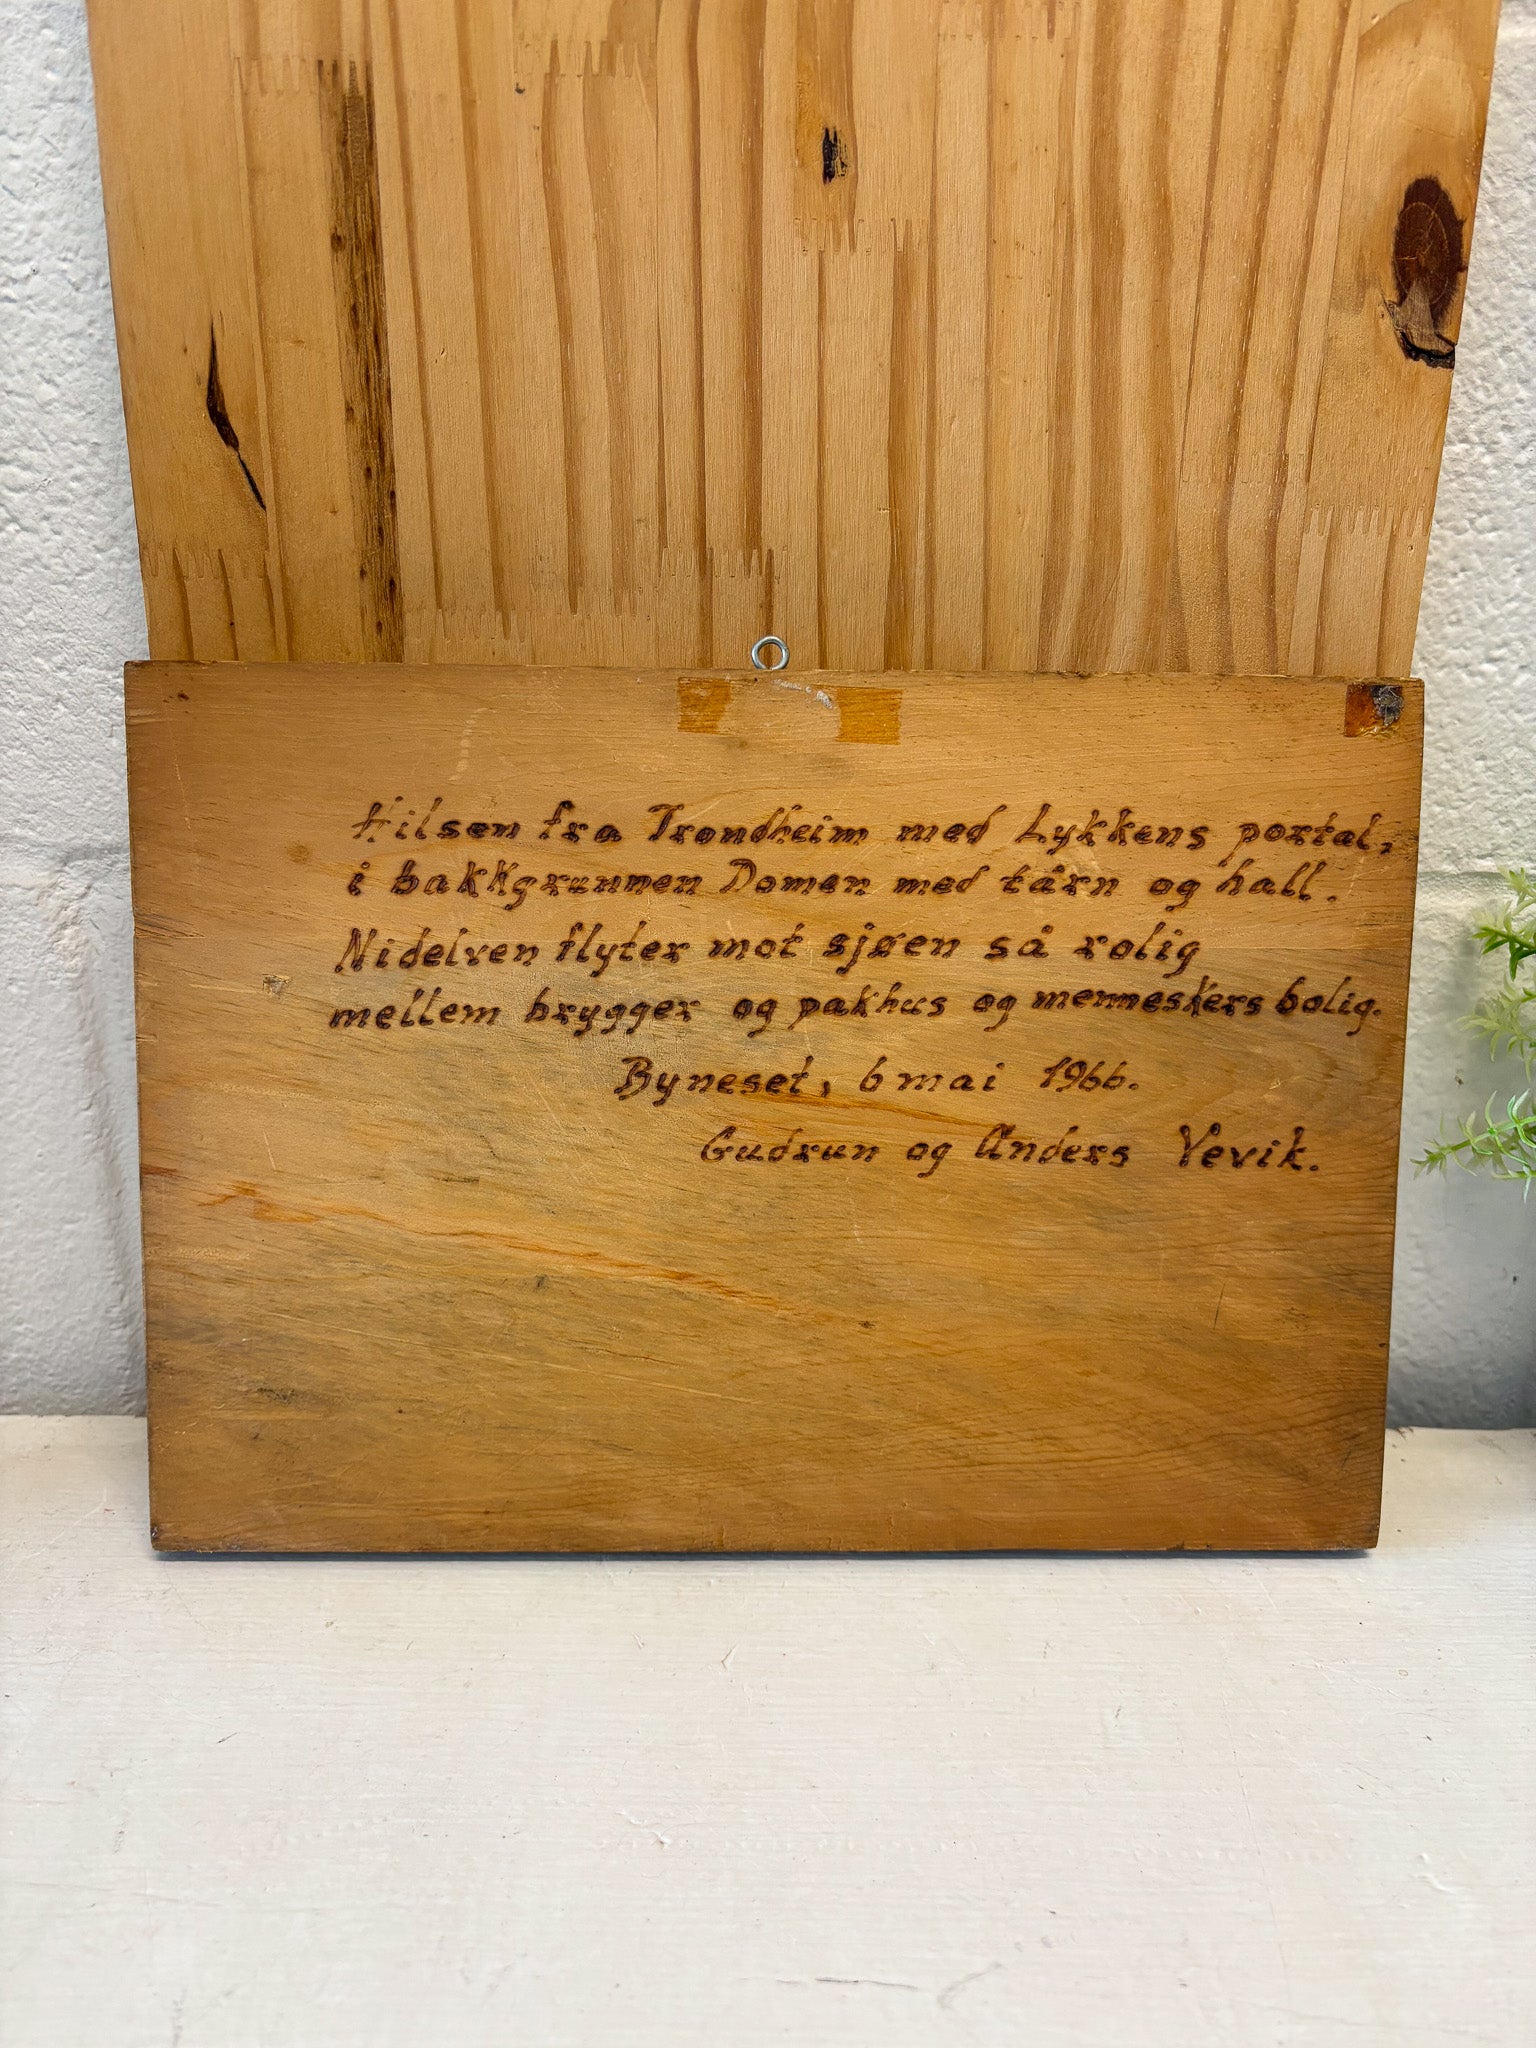 Hilsen fra Trondheim med Lykkens portal,
i bakkgrunnen Domen med tårn og hall.
Nidelven flyter mot sjøen så rolig
mellem brygger og pakhus og menneskers bolig.
Byneset, 6 mai 1966.
Gudrun og Anders Vevik.